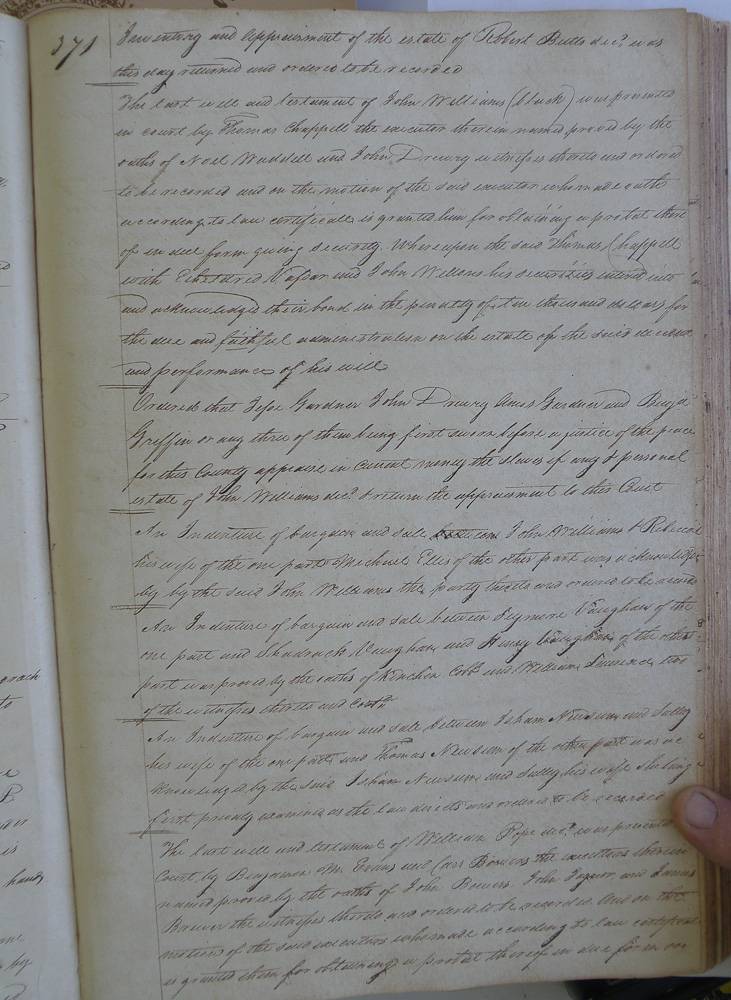 371
Inventory and Appraisment of the estate of Robert Butts decd. was
this day returned and ordered to be recorded
The last will and testament of John Williams (black) was presented
in court by Thomas Chappell the executor therein named proved by the
oaths of Noel Waddell and John Drewry witnesses thereto and ordered
to be recorded and on the motion of the said executor who made oath
according to law certificate is granted him for obtaining a probat there
of in due form giving security. Whereupon the said Thomas Chappell
with Etheldred and John Wellons his securities entered into
and acknowledged their bond in the penalty of two thousand dollars for
the due and faithful administration on the estate of the said decedent
and performance of his will
Ordered that Jesse Gardner John Drewry Amos Gardner and Benja.
Griffin or any three of them being first sworn before a justice of the peace
for this County appraise in current money the slaves if any & personal
estate of John Williams decd. & return the appraisment to this Court
An Indenture of bargain and sale between John Williams & Rebecca
his wife of the one part Michael Ellis of the other part was acknowledged
by by the said John Williams the party thereto and ordered to be recorded
An Indenture of bargain and sale between Seymore Vaughan of the
one part and Shadrach Vaughan and Henry Vaughan of the other
part was proved by the oaths of Kinchen Cobb and William Lawrence two
of the witnesses thereto and contd.
An Indenture of bargain and sale between Isham Newsum and Salley
his wife of the one part and Thomas Newsum of the other part was ac
knowledged by the said Isham Newsum and Salley his wife she being
first privily examined as the law directs and ordered to be recorded
The last will and testament of William Pope decd. was presented
Court by Benjamin Evans and Carr Bowers the executors therein
named proved by the oaths of John Bowers John and
Brewer the witnesses thereto and ordered to be recorded and on the
motion of the said executors who made according to law certificate
is granted them for obtaining a probat thereof in due form on